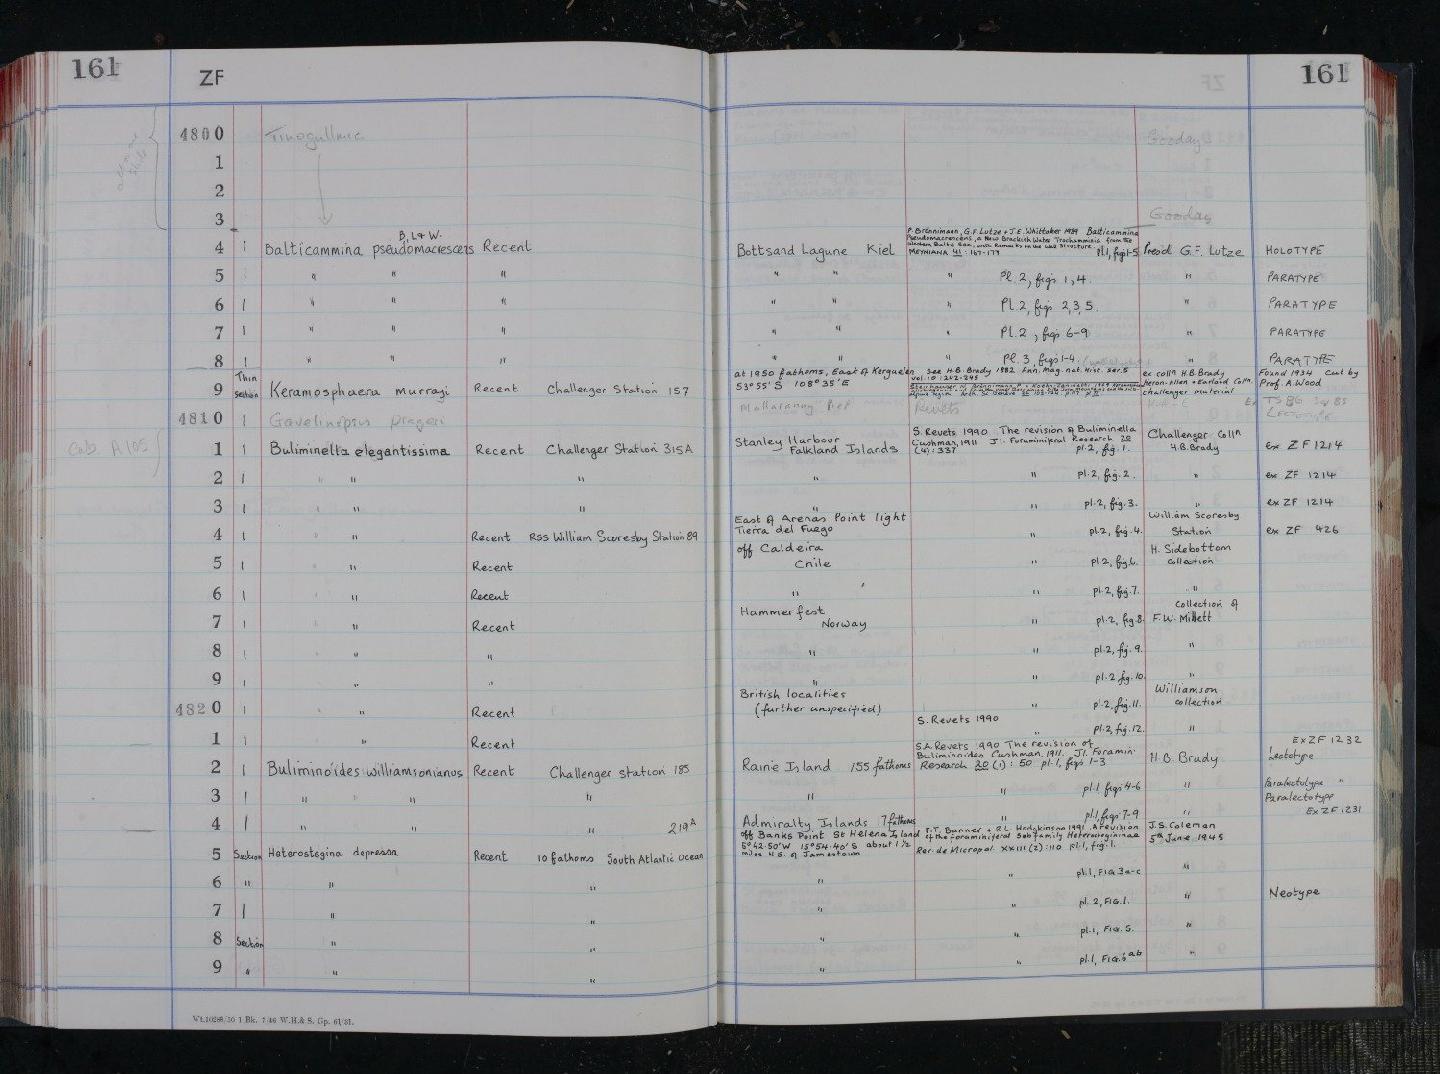 161
ZF
161
4800
Gooday
1
2
3
Gooday
B, L & W.
4 1 Balticammina pseudomacrescens Recent Bottsand Lagune Kiel P. Brönnimann, G.F. Lutze & J.E. Whittaker 1989 Balticammina
Pseudomacrescens, a New Brackish Water Trochamminid from the
Western Baltic Sea, with Remarks on the Wall Structure
MEYNIANA 41: 167-177 Pl.1, figs 1-5 Pres'd G.F. Lutze HOLOTYPE
5 " " " " " " Pl. 2, figs 1, 4. " PARATYPE
6 1 " " " " " " Pl. 2, figs 2, 3, 5. " PARATYPE
7 1 " " " " " " Pl. 2, figs 6-9 " PARATYPE
8 1 " " " " " " Pl. 3, figs 1-4. " PARATYPE
Thin at 1950 fathoms, East of Kerguelen See H.B. Brady 1882 Ann. Mag. nat. Hist. ser.5 ex colln H.B. Brady Found 1934 Cut by
vol.10: 242-245
9 section Keramosphaera murrayi Recent Challenger Station 157 53°55'S 108°35'E Heron-Allen & Earland Colln. Prof. A. Wood
challenger material
4810 1 Revets
Lectotype
Cab. A105
1 1 Buliminella elegantissima Recent Challenger Station 315A Stanley Harbour
Falkland Islands S. Revets 1990 The revision of Buliminella
Cushman, 1911 J. Foraminiferal Research 20
(4): 337 pl.2, fig.1. Challenger Colln
H.B. Brady ex ZF 1214
2 1 " " " " " pl.2, fig.2. " ex ZF 1214
3 1 " " " " " pl.2, fig.3. " ex ZF 1214
4 1 " Recent RSS William Scoresby Station 89 East of Arenas Point light
Tierra del Fuego " pl.2, fig.4. William Scoresby
Station ex ZF 426
5 1 " Recent off Caldeira
Chile " pl.2, fig.6. H. Sidebottom
collection
6 1 " Recent " " pl.2, fig.7. "
7 1 " Recent Hammerfest
Norway " pl.2, fig.8. Collection of
F.W. Millett
8 1 " " " " pl.2, fig.9. "
9 1 " " " " pl.2 fig.10. "
4820 1 " Recent British localities
(further unspecified) " pl.2, fig.11. Williamson
collection
1 1 " Recent S. Revets 1990 " pl.2, fig.12. "
2 1 Buliminoides williamsonianus Recent Challenger station 185 Raine Island 155 fathoms S.A. Revets 1990 The revision of
Buliminoides Cushman, 1911. Jl. Foramin.
Research 20 (1): 50 pl.1, figs 1-3 H.B. Brady Ex ZF 1232
Lectotype
3 1 " " " " " pl.1 figs 4-6 Paralectotype "
4 1 " " " 219A Admiralty Islands 17 fathoms pl.1, figs 7-9 " Paralectotype
Ex ZF 1231
5 Section Heterostegina depressa Recent 10 fathoms South Atlantic Ocean off Banks Point St Helena Island
5°42.50'W 15°54.40'S about 1½
miles N.E. of Jamestown F.T. Banner & R.L. Hodgkinson 1991 A revision
of the foraminiferal Subfamily Heterostegininae
Rev. de Micropal. XXIII (2): 110 pl.1, fig.1. J.S. Coleman
5th June 1945
6 " " " " " pl.1, FIG 3a-c "
7 1 " " " " pl. 2, FIG.1. " Neotype
8 Section " " " " pl.1, FIG. 5. "
9 " " " " " pl.1, FIG. 6ab "
Wt.10288/30 1 Bk. 7/46 W.H.& S. Gp. 61/81.